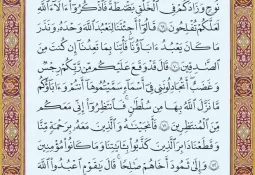 نُوحٍ وَزَادَكُمْ فِي ٱلْخَلْقِ بَصْۜطَةً فَٱذْكُرُوٓا۟ ءَالَآءَ ٱللَّهِ
لَعَلَّكُمْ تُفْلِحُونَ ۝ قَالُوٓا۟ أَجِئْتَنَا لِنَعْبُدَ ٱللَّهَ وَحْدَهُۥ وَنَذَرَ
مَا كَانَ يَعْبُدُ ءَابَآؤُنَا فَأْتِنَا بِمَا تَعِدُنَآ إِن كُنتَ مِنَ
ٱلصَّٰدِقِينَ ۝ قَالَ قَدْ وَقَعَ عَلَيْكُم مِّن رَّبِّكُمْ رِجْسٌ
وَغَضَبٌ أَتُجَٰدِلُونَنِي فِيٓ أَسْمَآءٍ سَمَّيْتُمُوهَآ أَنتُمْ وَءَابَآؤُكُم
مَّا نَزَّلَ ٱللَّهُ بِهَا مِن سُلْطَٰنٍ فَٱنتَظِرُوٓا۟ إِنِّي مَعَكُم
مِّنَ ٱلْمُنتَظِرِينَ ۝ فَأَنجَيْنَٰهُ وَٱلَّذِينَ مَعَهُۥ بِرَحْمَةٍ مِّنَّا
وَقَطَعْنَا دَابِرَ ٱلَّذِينَ كَذَّبُوا۟ بِـَٔايَٰتِنَا وَمَا كَانُوا۟ مُؤْمِنِينَ
۝ وَإِلَىٰ ثَمُودَ أَخَاهُمْ صَٰلِحًا قَالَ يَٰقَوْمِ ٱعْبُدُوا۟ ٱللَّهَ